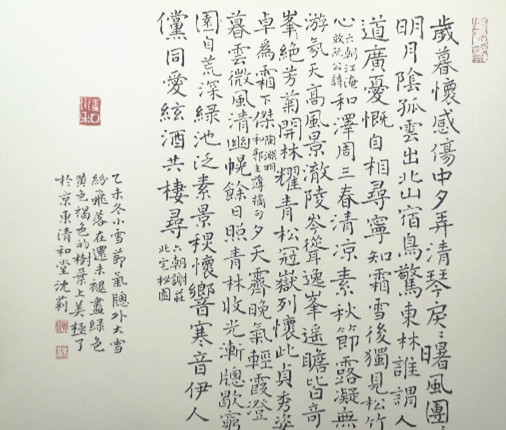 歲暮懷感傷中夕弄清琴戾〻曙風團〻
明月陰孤雲出北山宿鳥驚東林誰謂人
道廣憂慨自相尋寧知霜雪後獨見松竹
心六朝江淹效阮公詩和澤周三春清涼素秋節露凝無
游氛天高風景澈陵岑聳逸峯遙瞻皆奇
峯絕芳菊開林耀青松冠巖列懷此貞秀姿
卓為霜下傑陶淵明和郭主簿摘句夕天霽晚氣輕霞澄
暮雲微風清幽幌餘日照青林收光漸牕歇窮
園自荒深綠池泛素景秋懷響寒音伊人
儻同愛絃酒共棲尋六朝謝莊北宅秘園
乙未冬小雪節氣牕外大雪
紛飛落在還未褪盡綠色
黃色褐色的樹葉上美極了
於京東清和堂沈莉